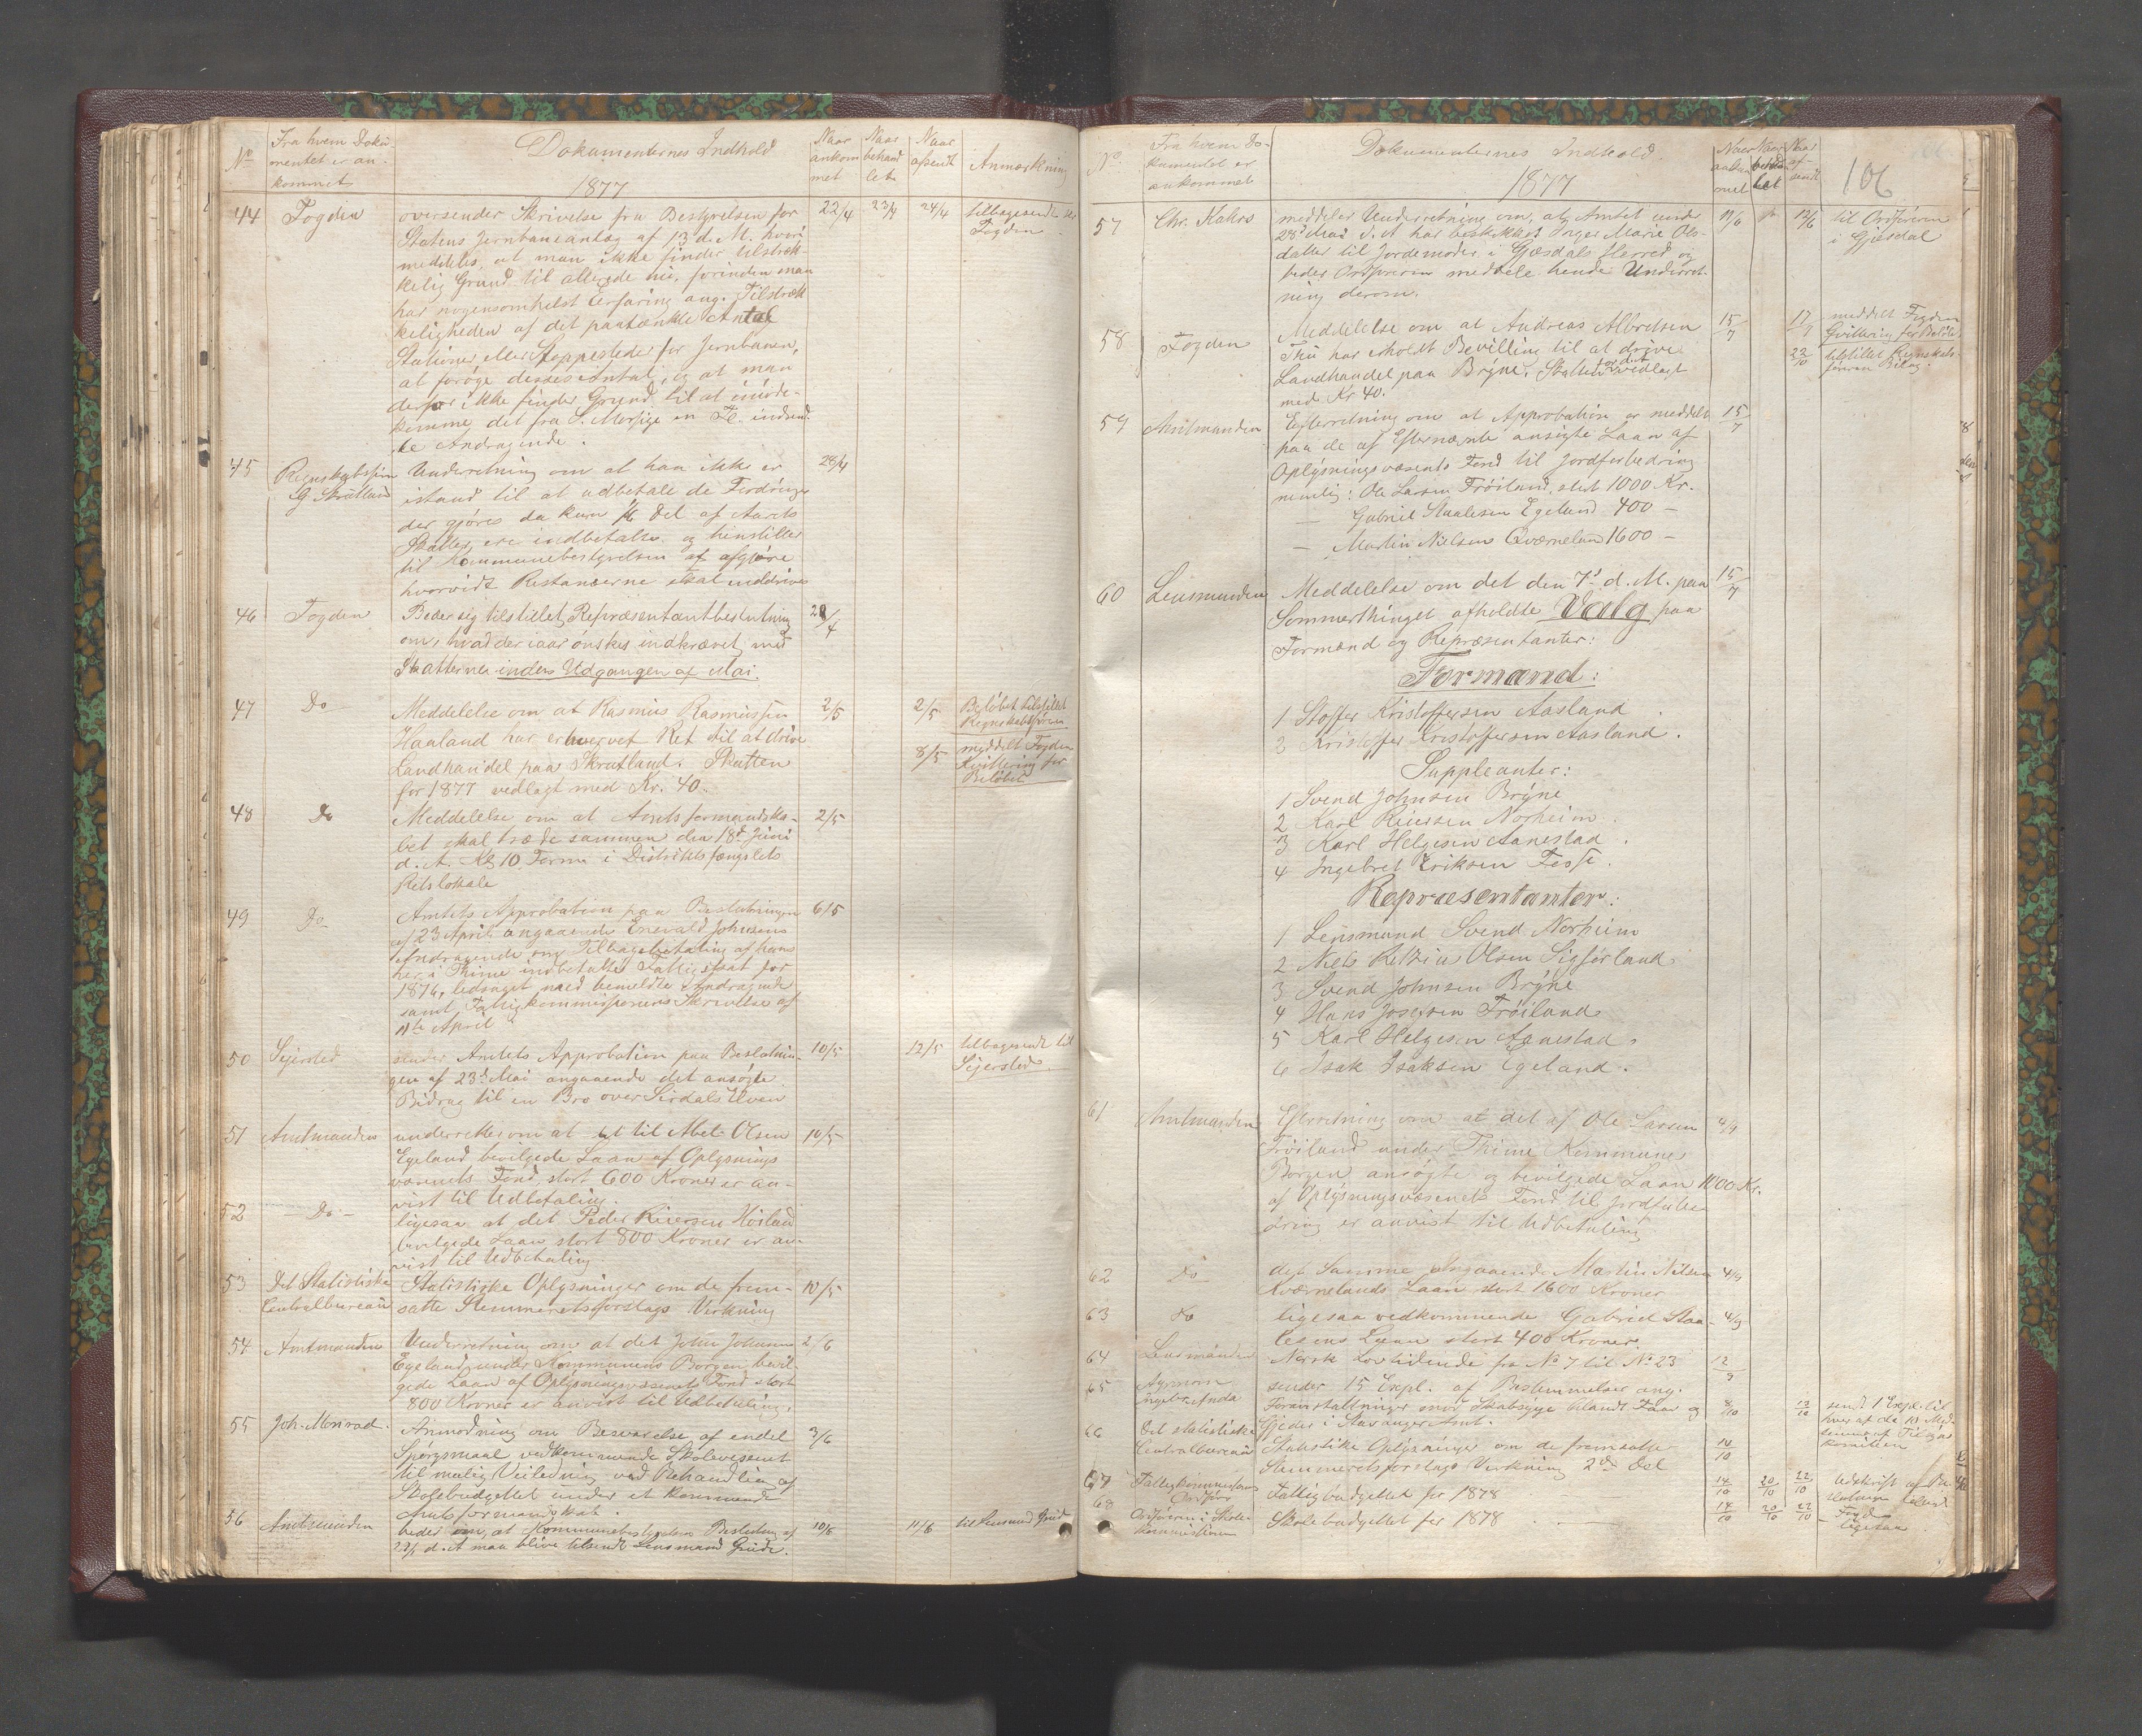 No
Fra hvem Doku-
mentet er an-
kommet
Dokumenternes Indhold
1877
Naar
ankom
met
Naar
behand
let
Naar
afsendt
Anmærkning
44 Fogden oversender Skrivelse fra Bestyrelsen for 22/4 23/4 24/4 tilbagesendt
Statens Jernbaneanlæg af 13 d. M. hvori Fogden
meddeles, at man ikke finder tilstræk-
kelig Grund til allerede nu, forinden man
har nogensomhelst Erfaring ang. Tilstræk
keligheden af det paatænkte Antal
Stationer eller Stoppesteder for Jernbanen,
at forøge disses Antal, og at man
derfor ikke finder Grund til at imøde-
komme det fra S. Mossige en Fl. indsend-
te Andragende.
45 Underretning om at han ikke er 28/4
G Skrutland istand til at udbetale de Fordringer
der gjøres da kun 1/6 Del af Aarets
Skatter ere indbetalte og henstiller
til Kommunebestyrelsen at afgjøre
hvorvidt Restancerne skal inddrives
46 Fogden Beder sig tilstillet Repræsentantbeslutning 28/4
om, hvad der iaar ønskes indkrævet med
Skatterne inden Udgangen af Mai.
47 Do Meddelelse om at Rasmus Rasmussen 2/5 2/5 Beløbet tilstillet
Regnskabsføreren
Haaland har erhvervet Ret til at drive
Landhandel paa Skrutland. Skatten 8/5 meddelt Fogden
Kvittering for
Beløbet
for 1877 vedlagt med Kr. 40.
48 Do Meddelelse om at Amtsformandska- 2/5
bet skal træde sammen den 18de Juni
d. A. Kl 10 Form i Distriktsfængslets
Retslokale
49 Do Amtets Approbation paa Beslutningen 6/5
af 23 April angaaende Enevald Johnsens
Andragende om Tilbagebetaling af hans
her i Thime indbetalte Fattigskat for
1876, ledsaget med bemeldte Andragende
samt Fattigkommissionens Skrivelse af
11te April
50 Sejersted sender Amtets Approbation paa Beslutnin- 10/5 12/5 tilbagesendt til
Sejersted.
gen af 23de Mai angaaende det ansøgte
Bidrag til en Bro over Sirdals Elven
51 Amtmanden underrettes om at det til Abel Olsen 10/5
Egeland bevilgede Laan af Oplysnings
væsenets Fond, stort 600 Kroner er an-
vist til Udbetaling.
52 - Do - ligesaa at det Peder Reiersen Høiland
bevilgede Laan stort 800 Kroner er an-
vist til Udbetaling
53 Det Statistiske Statistiske Oplysninger om de frem- 10/5
Centralbureau satte Stemmeretsforslags Virkning
54 Amtmanden Underretning om at det John Johnsen 2/6
Egeland under Kommunens Borgen bevil-
gede Laan af Oplysningsvæsenets Fond stort
800 Kroner er anvist til Udbetaling.
55 Joh. Monrad. Anmodning om Besvarelse af endel 3/6
Spørgsmaal vedkommende Skolevæsenet
til mulig Veiledning ved Behandling af
Skolebudgettet under et kommende
Amtsformandskab.
56 Amtmanden beder om, at Kommunebestyrelsens Beslutning af 10/6 11/6 til Lensmand Grude
d. A maa blive tilsendt Lensmand Grude.
No.
Fra hvem Do-
kumentet er
ankommet
Dokumenternes Indhold
1877
Naar
ankom
met
Naar
behand
let
Naar
af-
sendt
106
57 Chr. Kahrs meddeler Underretning om, at Amtet under 11/6 12/6 til Ordføreren
i Gjesdal
28de Mai d. A har beskikket Inger Marie Ols-
datter til Jordemoder i Gjesdals Herred og
beder Ordføreren meddele hende Underret-
ning derom.
58 Fogden Meddelelse om at Andreas Albretsen 15/7 17/7 meddelt Fogden
Qvittering for Beløbet
Thu har erholdt Bevilling til at drive 22/10 tilstillet Regnskabs-
føreren Bilag.
Landhandel paa Bryne, Skatten vedlagt
med Kr 40.
59 Amtmanden Efterretning om at Approbation er meddelt 15/7
paa de af Efternævnte ansøgte Laan af
Oplysningsvæsenets Fond til Jordforbedring
nemlig: Ole Larsen Frøiland, stort 1000 Kr.
- Gabriel Staalesen Egeland 400 -
- Martin Nielsen Qværneland 1600 -
60 Lensmanden Meddelelse om det den 7de d. M. paa 15/7
Sommerthinget afholdte Valg paa
Formænd og Repræsentanter:
Formænd:
1 Stoffer Kristoffersen Aasland
2 Kristoffer Kristoffersen Aasland.
Suppleanter:
1 Svend Johnsen Bryne
2 Karl Reiersen Norheim.
3 Karl Helgesen Aanestad.
4 Ingebret Eriksen Fosse.
Repræsentanter:
1 Lensmand Svend Norheim
2 Niels Olsen
3 Svend Johnsen Bryne
4 Hans Josefsen Frøiland
5 Karl Helgesen Aanestad.
6 Isak Isaksen Egeland.
61 Amtmanden Efterretning om at det af Ole Larsen 4/9
Frøiland under Thime Kommunes
Borgen ansøgte og bevilgede Laan 1000 Kr.
af Oplysningsvæsenets Fond til Jordforbe
dring er anvist til Udbetaling
62 Do det Samme angaaende Martin Nilsen 4/9
Kværnelands Laan stort 1600 Kroner
63 Do ligesaa vedkommende Gabriel Staa- 4/9
lesens Laan stort 400 Kroner.
64 Lensmanden Norsk Lovtidende fra No 7 til No 23 12/9
65 Agronom
Ingebr. Anda sender 15 Expl. af Bestemmelser ang.
Foranstaltninger mod Skabsyge blandt Faar og 8/10 12/10 sendt 1 Expl. til
hver af de 10 Med-
lemmer af Tilsyns
komiteen
Gjeder i Stavanger Amt.
66 Det statistiske
Centralbureau Statistiske Oplysninger om de fremsatte 14/10
Stemmeretsforslags Virkning 2den Del
67 Fattigkommissionens
Ordfører Fattigbudgettet for 1878 14/10 20/10 22/10 Udskrift af Be-
slutningen tilsendt
Fogden
68 Ordføreren i Skole-
kommissionen Skolebudgettet for 1878 14/10 20/10 22/10 ligesaa